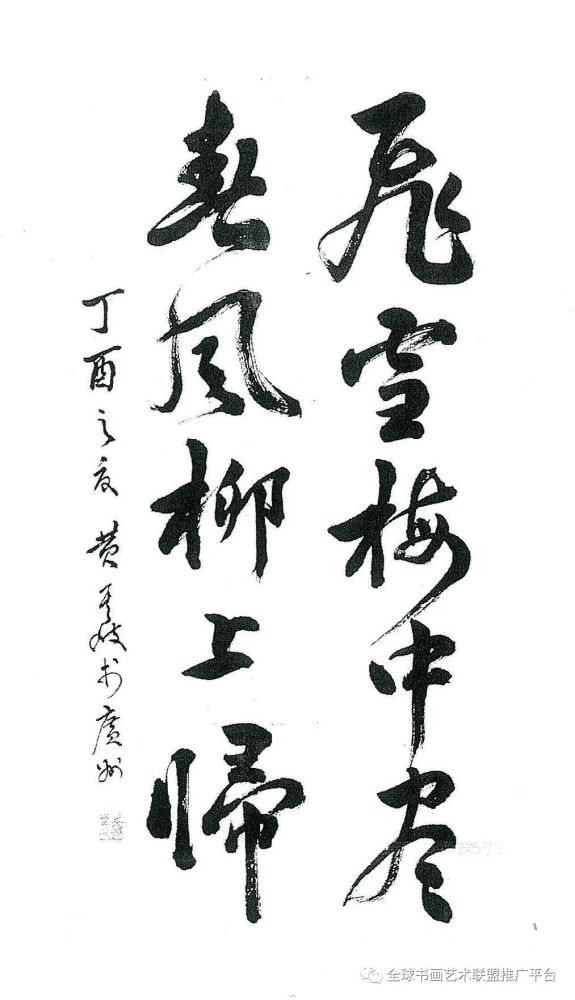 飛雪梅中尽
春风柳上帰
丁酉之夏 黄 廣州
全球书画艺术联盟推广平台